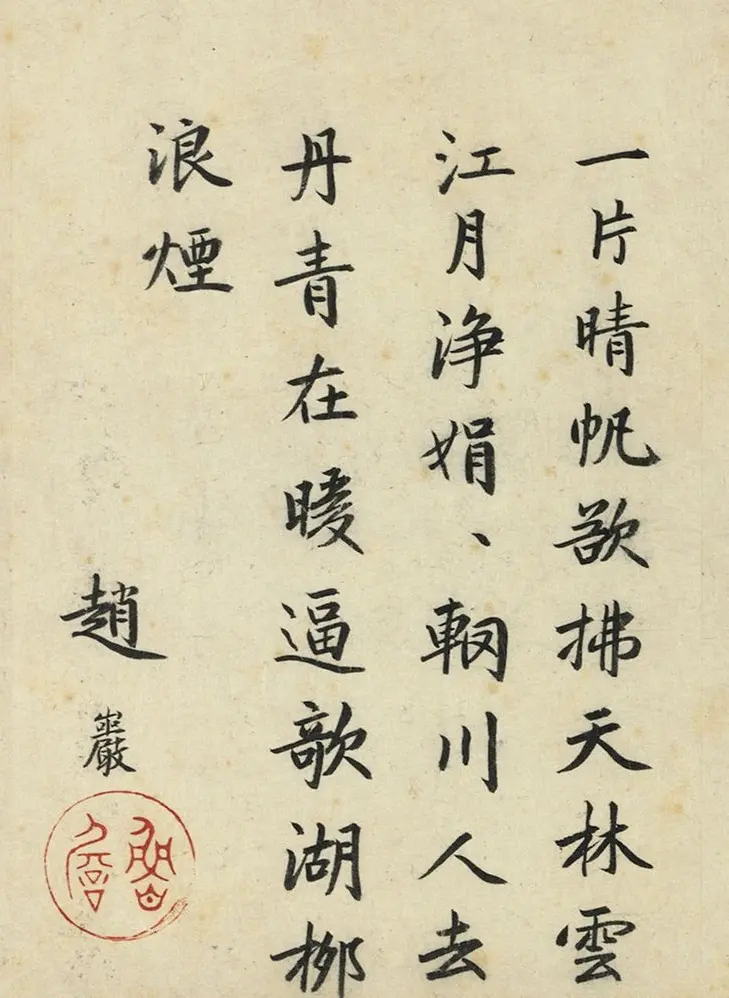 一片晴帆欲拂天林雲
江月浄娟、輞川人去
丹青在暖逼欹湖柳
浪煙
趙巖